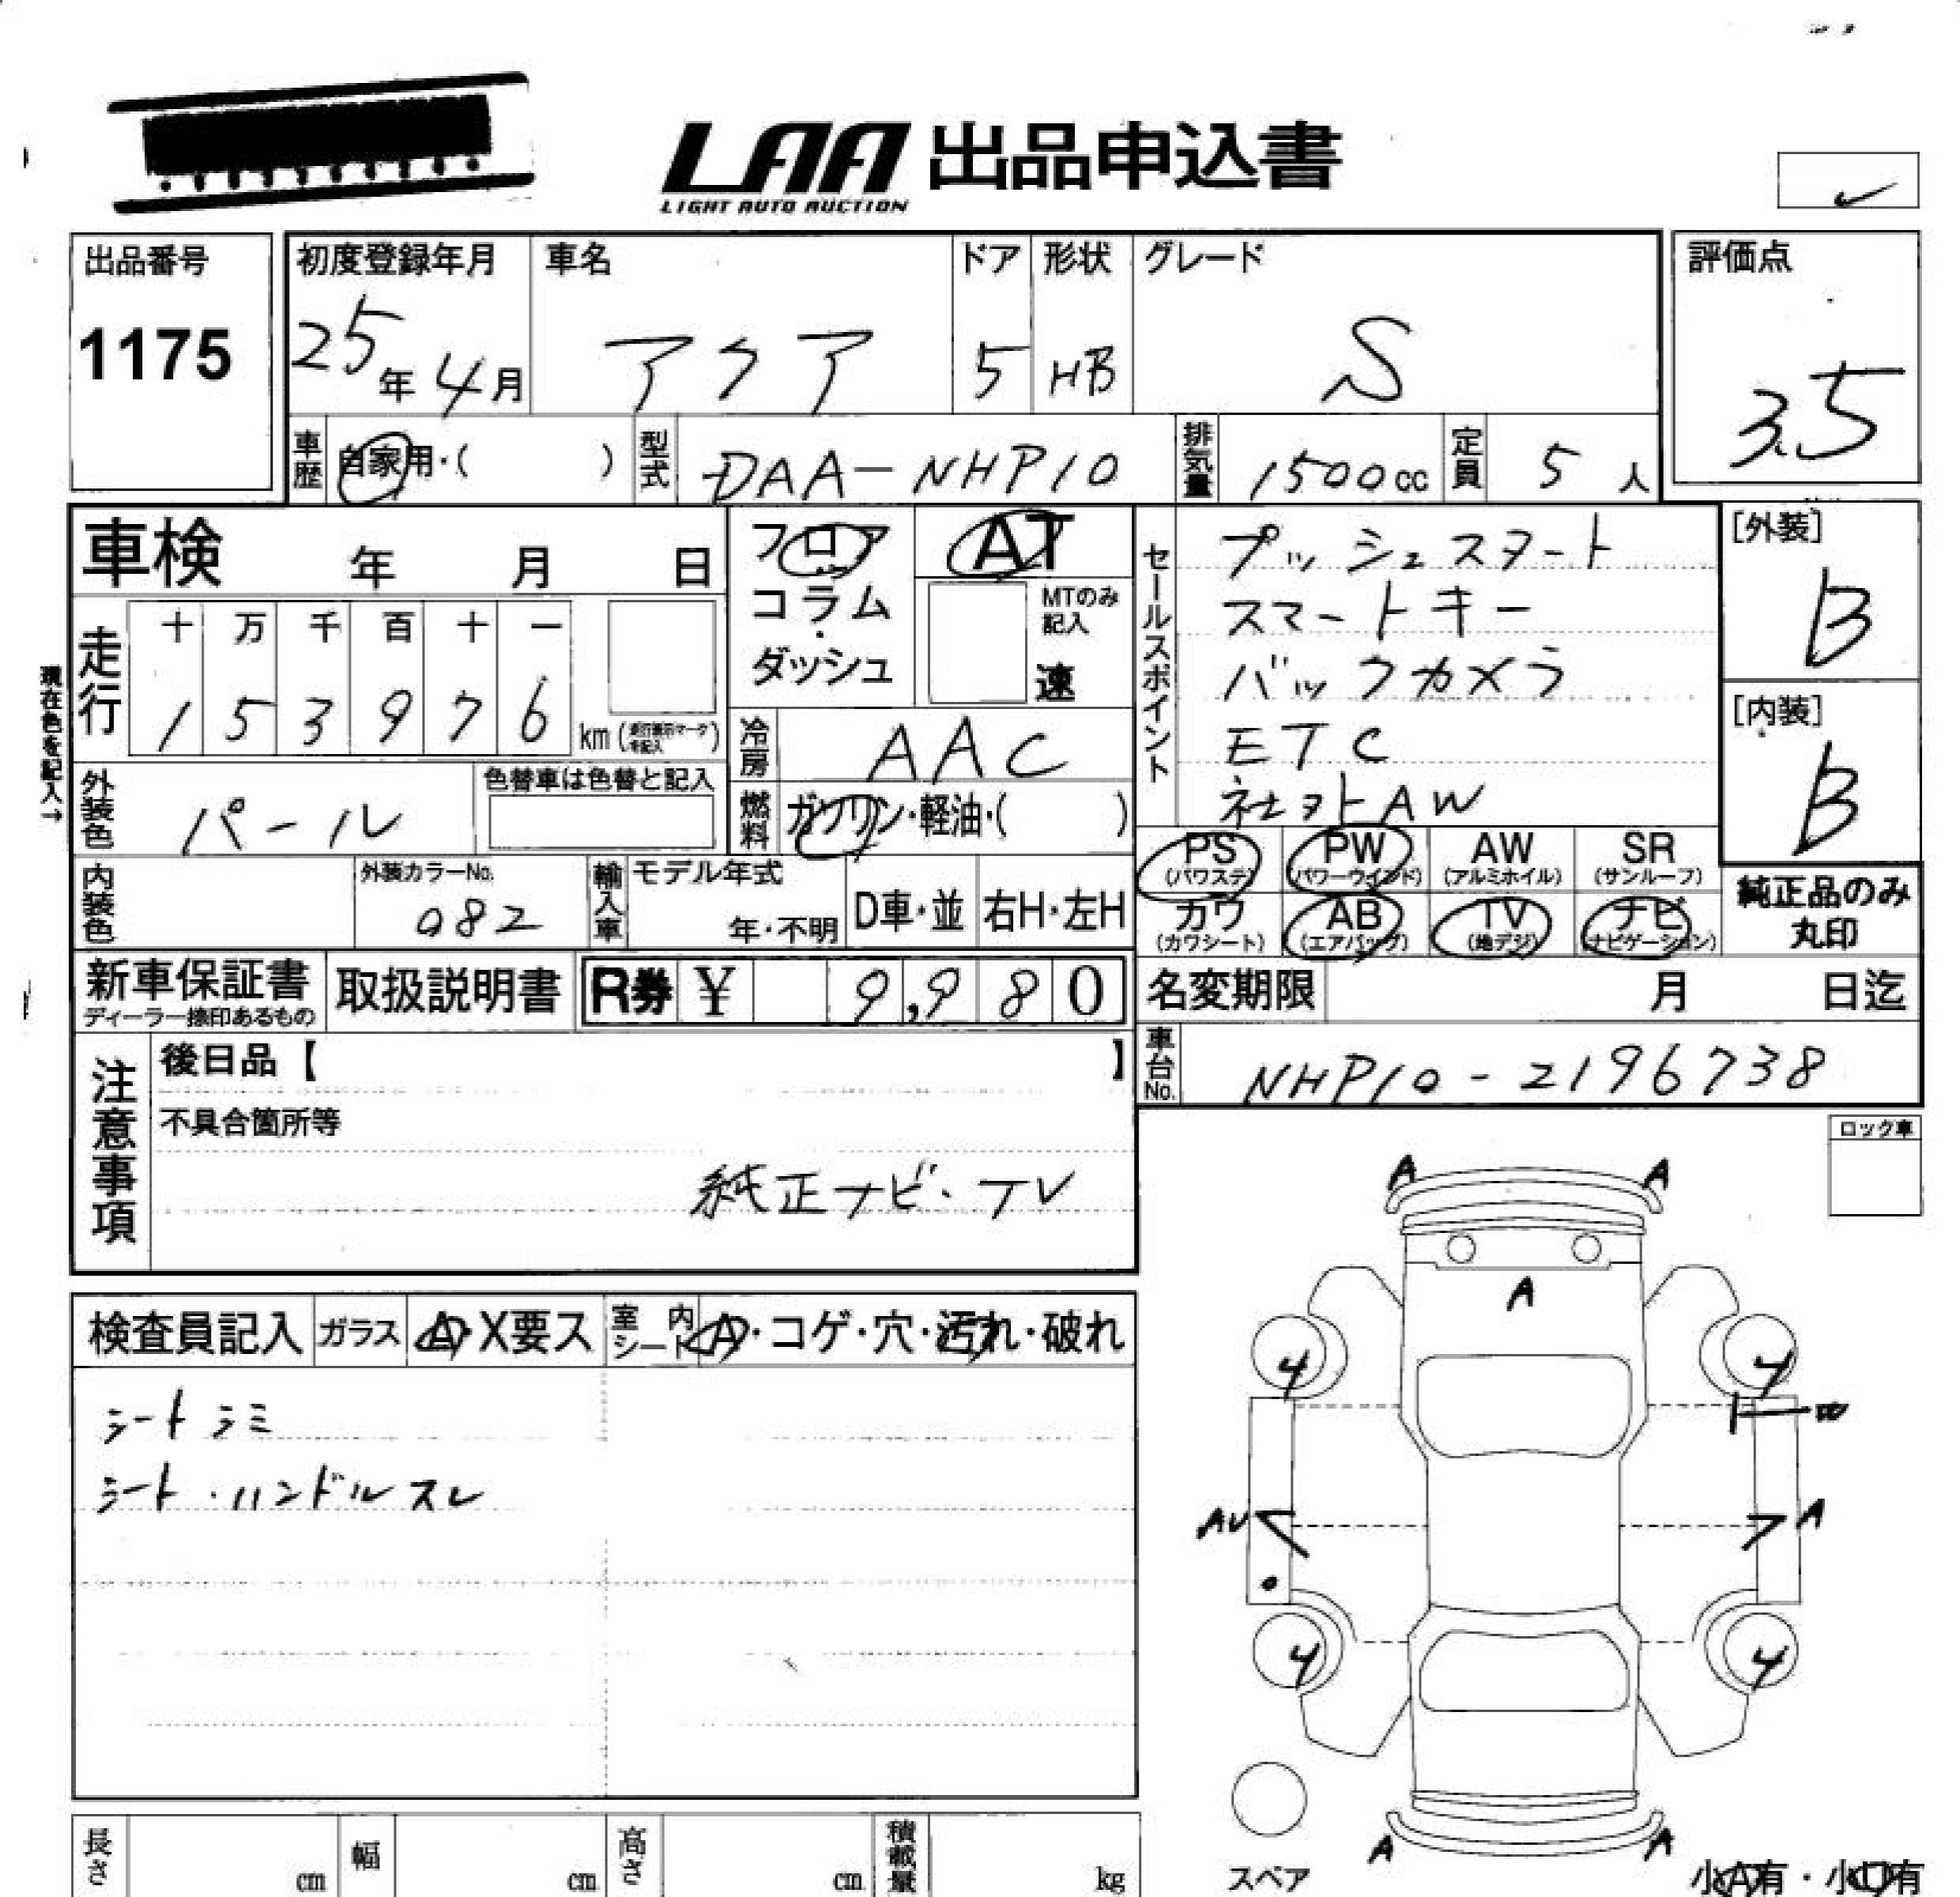 LAA 出品申込書
LIGHT AUTO AUCTION
出品番号 初度登録年月 車名 ドア 形状 グレード 評価点
1175 25年 4月 アクア 5 HB S 3.5
車歴 自家用・( ) 型式 DAA-NHP10 排気量 1500cc 定員 5人
車検 年 月 日 フロア AT セールスポイント プッシュスタート [外装]
コラム・ MTのみ記入 スマートキー B
ダッシュ 速 バックカメラ [内装]
走行 十 万 千 百 十 一 ETC B
1 5 3 9 7 6 km 冷房 AAC 社外AW
現在色を記入→
外装色 パール 色替車は色替と記入 燃料 ガソリン・軽油・( )
PS (パワステ) PW (パワーウインド) AW (アルミホイル) SR (サンルーフ) 純正品のみ
カワ (カワシート) AB (エアバッグ) TV (地デジ) ナビ (ナビゲーション) 丸印
内装色 外装カラーNo. 082 輸入車 モデル年式 年・不明 D車・並 右H・左H
新車保証書 取扱説明書 R券 ¥ 9,980 名変期限 月 日迄
ディーラー捺印あるもの
車台No. NHP10-2196738
注意事項 後日品【 】
不具合箇所等
純正ナビ・TV
ロック車
A A
A
検査員記入 ガラス A・X要ス 室内シート A・コゲ・穴・汚れ・破れ
4 4
シートシミ
シート・ハンドルスレ
A
4 4
スペア
A A
小A有・小U有
長さ cm 幅 cm 高さ cm 積載量 kg